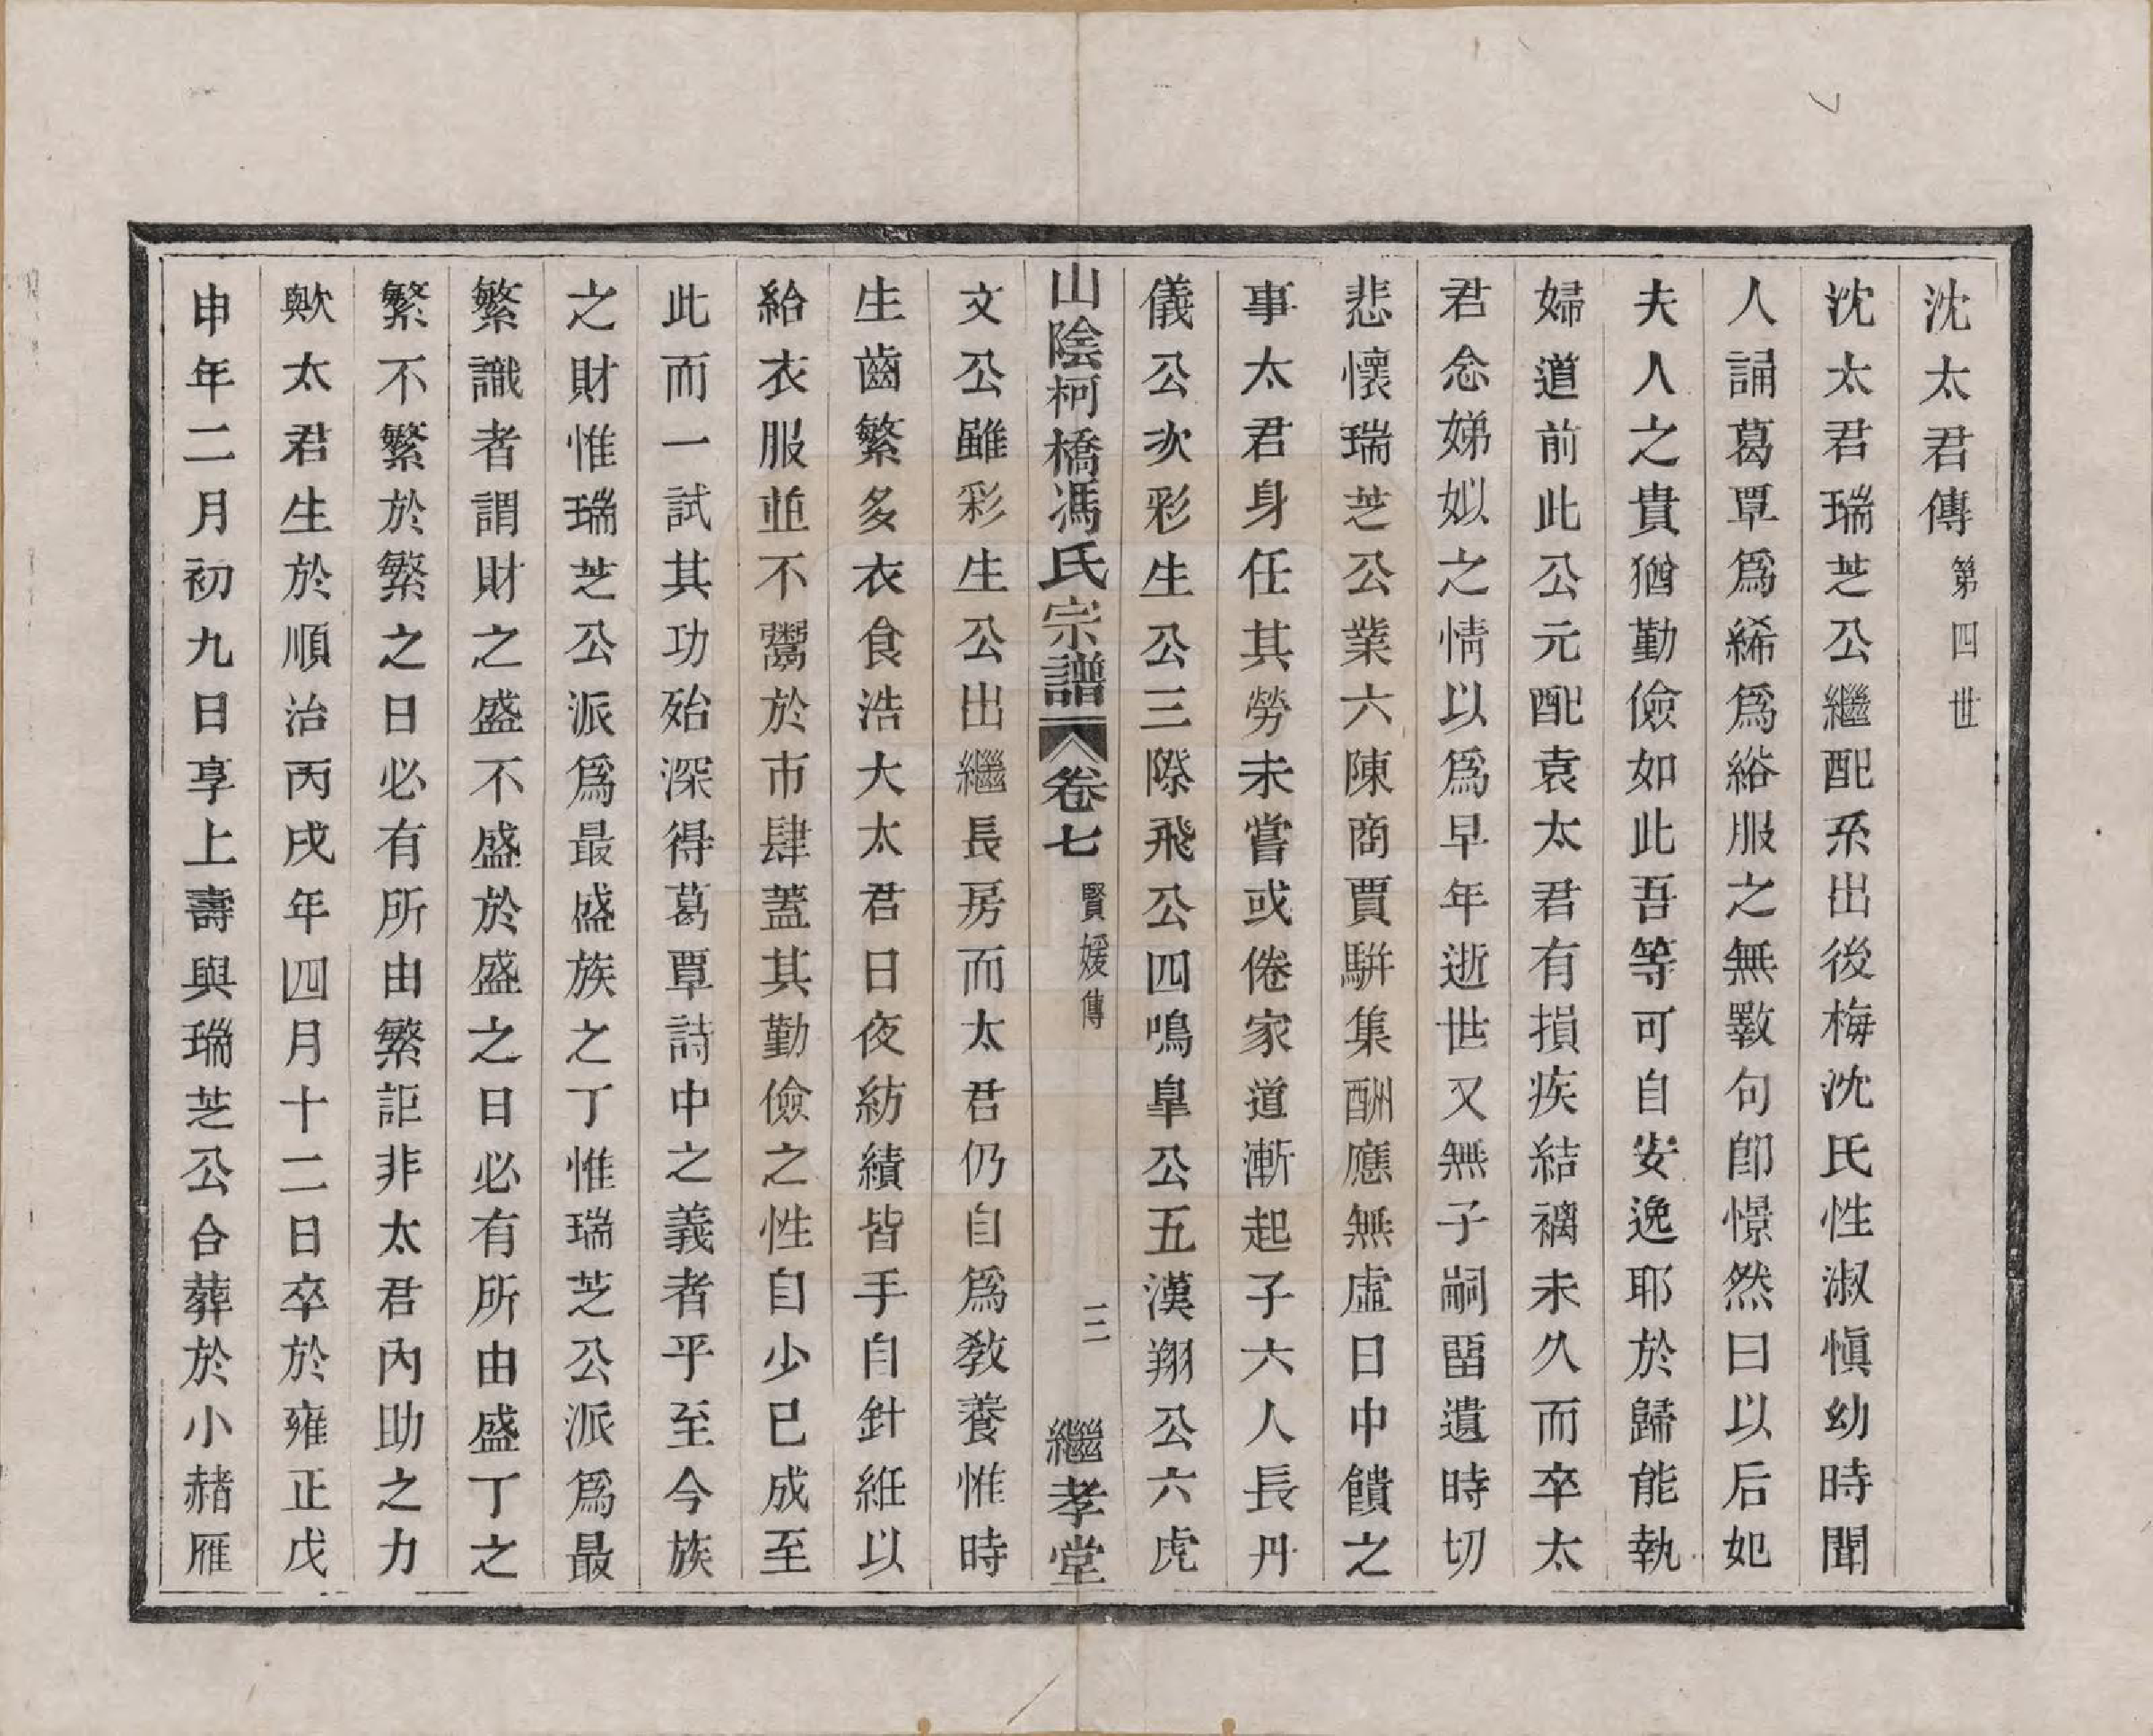 沈太君傳第四世
沈太君瑞芝公繼配系出後梅沈氏性淑愼幼時聞
人誦葛覃爲絺爲綌服之無斁句卽憬然曰以后妃
夫人之貴猶勤儉如此吾等可自安逸耶於歸能執
婦道前此公元配袁太君有損疾結褵未久而卒太
君念娣姒之情以爲早年逝世又無子嗣畱遺時切
悲懷瑞芝公業六陳商賈騈集酬應無虛日中饋之
事太君身任其勞未嘗或倦家道漸起子六人長丹
儀公次彩生公三際飛公四鳴臯公五漢翔公六虎
山陰柯橋馮氏宗譜卷七賢媛傳三繼孝堂
文公雖彩生公出繼長房而太君仍自爲敎養惟時
生齒繁多衣食浩大太君日夜紡績皆手自針紝以
給衣服並不鬻於市肆蓋其勤儉之性自少已成至
此而一試其功殆深得葛覃詩中之義者乎至今族
之財惟瑞芝公派爲最盛族之丁惟瑞芝公派爲最
繁識者謂財之盛不盛於盛之日必有所由盛丁之
繁不繁於繁之日必有所由繁詎非太君內助之力
歟太君生於順治丙戌年四月十二日卒於雍正戊
申年二月初九日享上壽與瑞芝公合葬於小赭雁